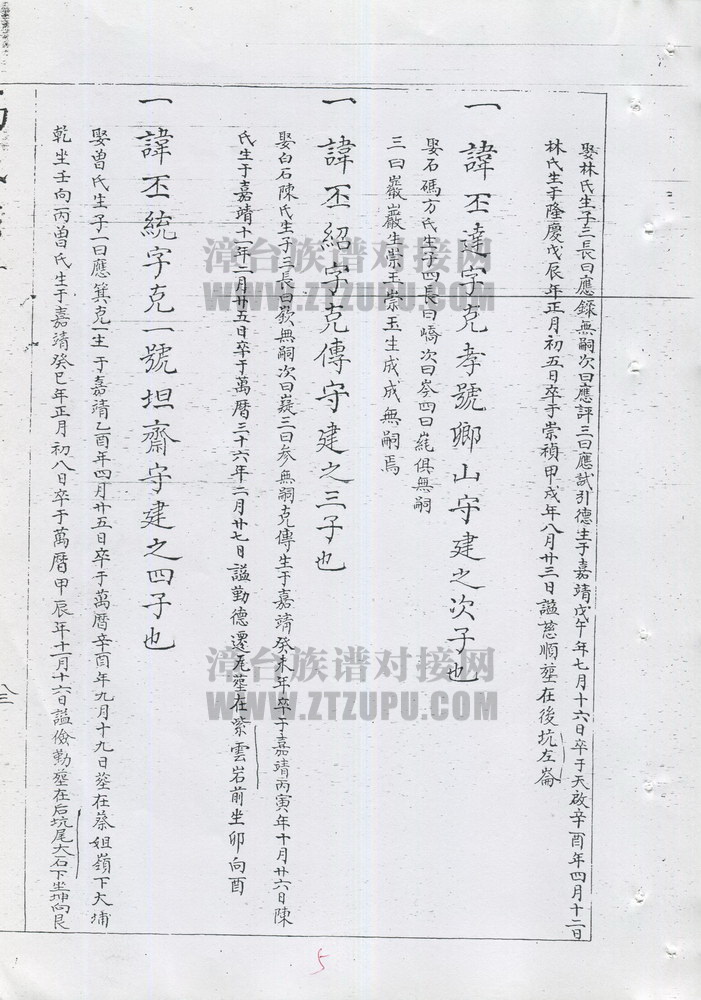 娶林氏生子三長曰應錄無嗣次曰應評三曰應試引德生于嘉靖戊午年七月十六日卒于天啟辛酉年四月十二日
林氏生于隆慶戊辰年正月初五日卒于崇禎甲戌年八月廿三日謚慈順塟在後坑左崙
一諱丕達字克孝號鄉山守建之次子也
娶石碼方氏生子四長曰嶠次曰岺四曰㟌俱無嗣
三曰巖巖生崇玉崇玉生成成無嗣焉
一諱丕紹字克傳守建之三子也
娶白石陳氏生子三長曰欽無嗣次曰嶷三曰参無嗣克傳生于嘉靖癸未年卒于嘉靖丙寅年十月廿六日陳
氏生于嘉靖十一年二月廿五日卒于萬曆三十六年二月廿七日謚勤德遷厖塟在紫雲岩前坐卯向酉
一諱丕統字克一號坦齋守建之四子也
娶曾氏生子一曰應箕克一生于嘉靖乙酉年四月廿五日卒于萬曆辛酉年九月十九日塟在蔡姐嶺下大埔
乾坐壬向丙曾氏生于嘉靖癸巳年正月初八日卒于萬曆甲辰年十一月十六日謚儉勤塟在后坑尾大石下坐坤向艮
漳台族谱对接网
WWW.ZTZUPU.COM
漳台族谱对接网
WWW.ZTZUPU.COM
5